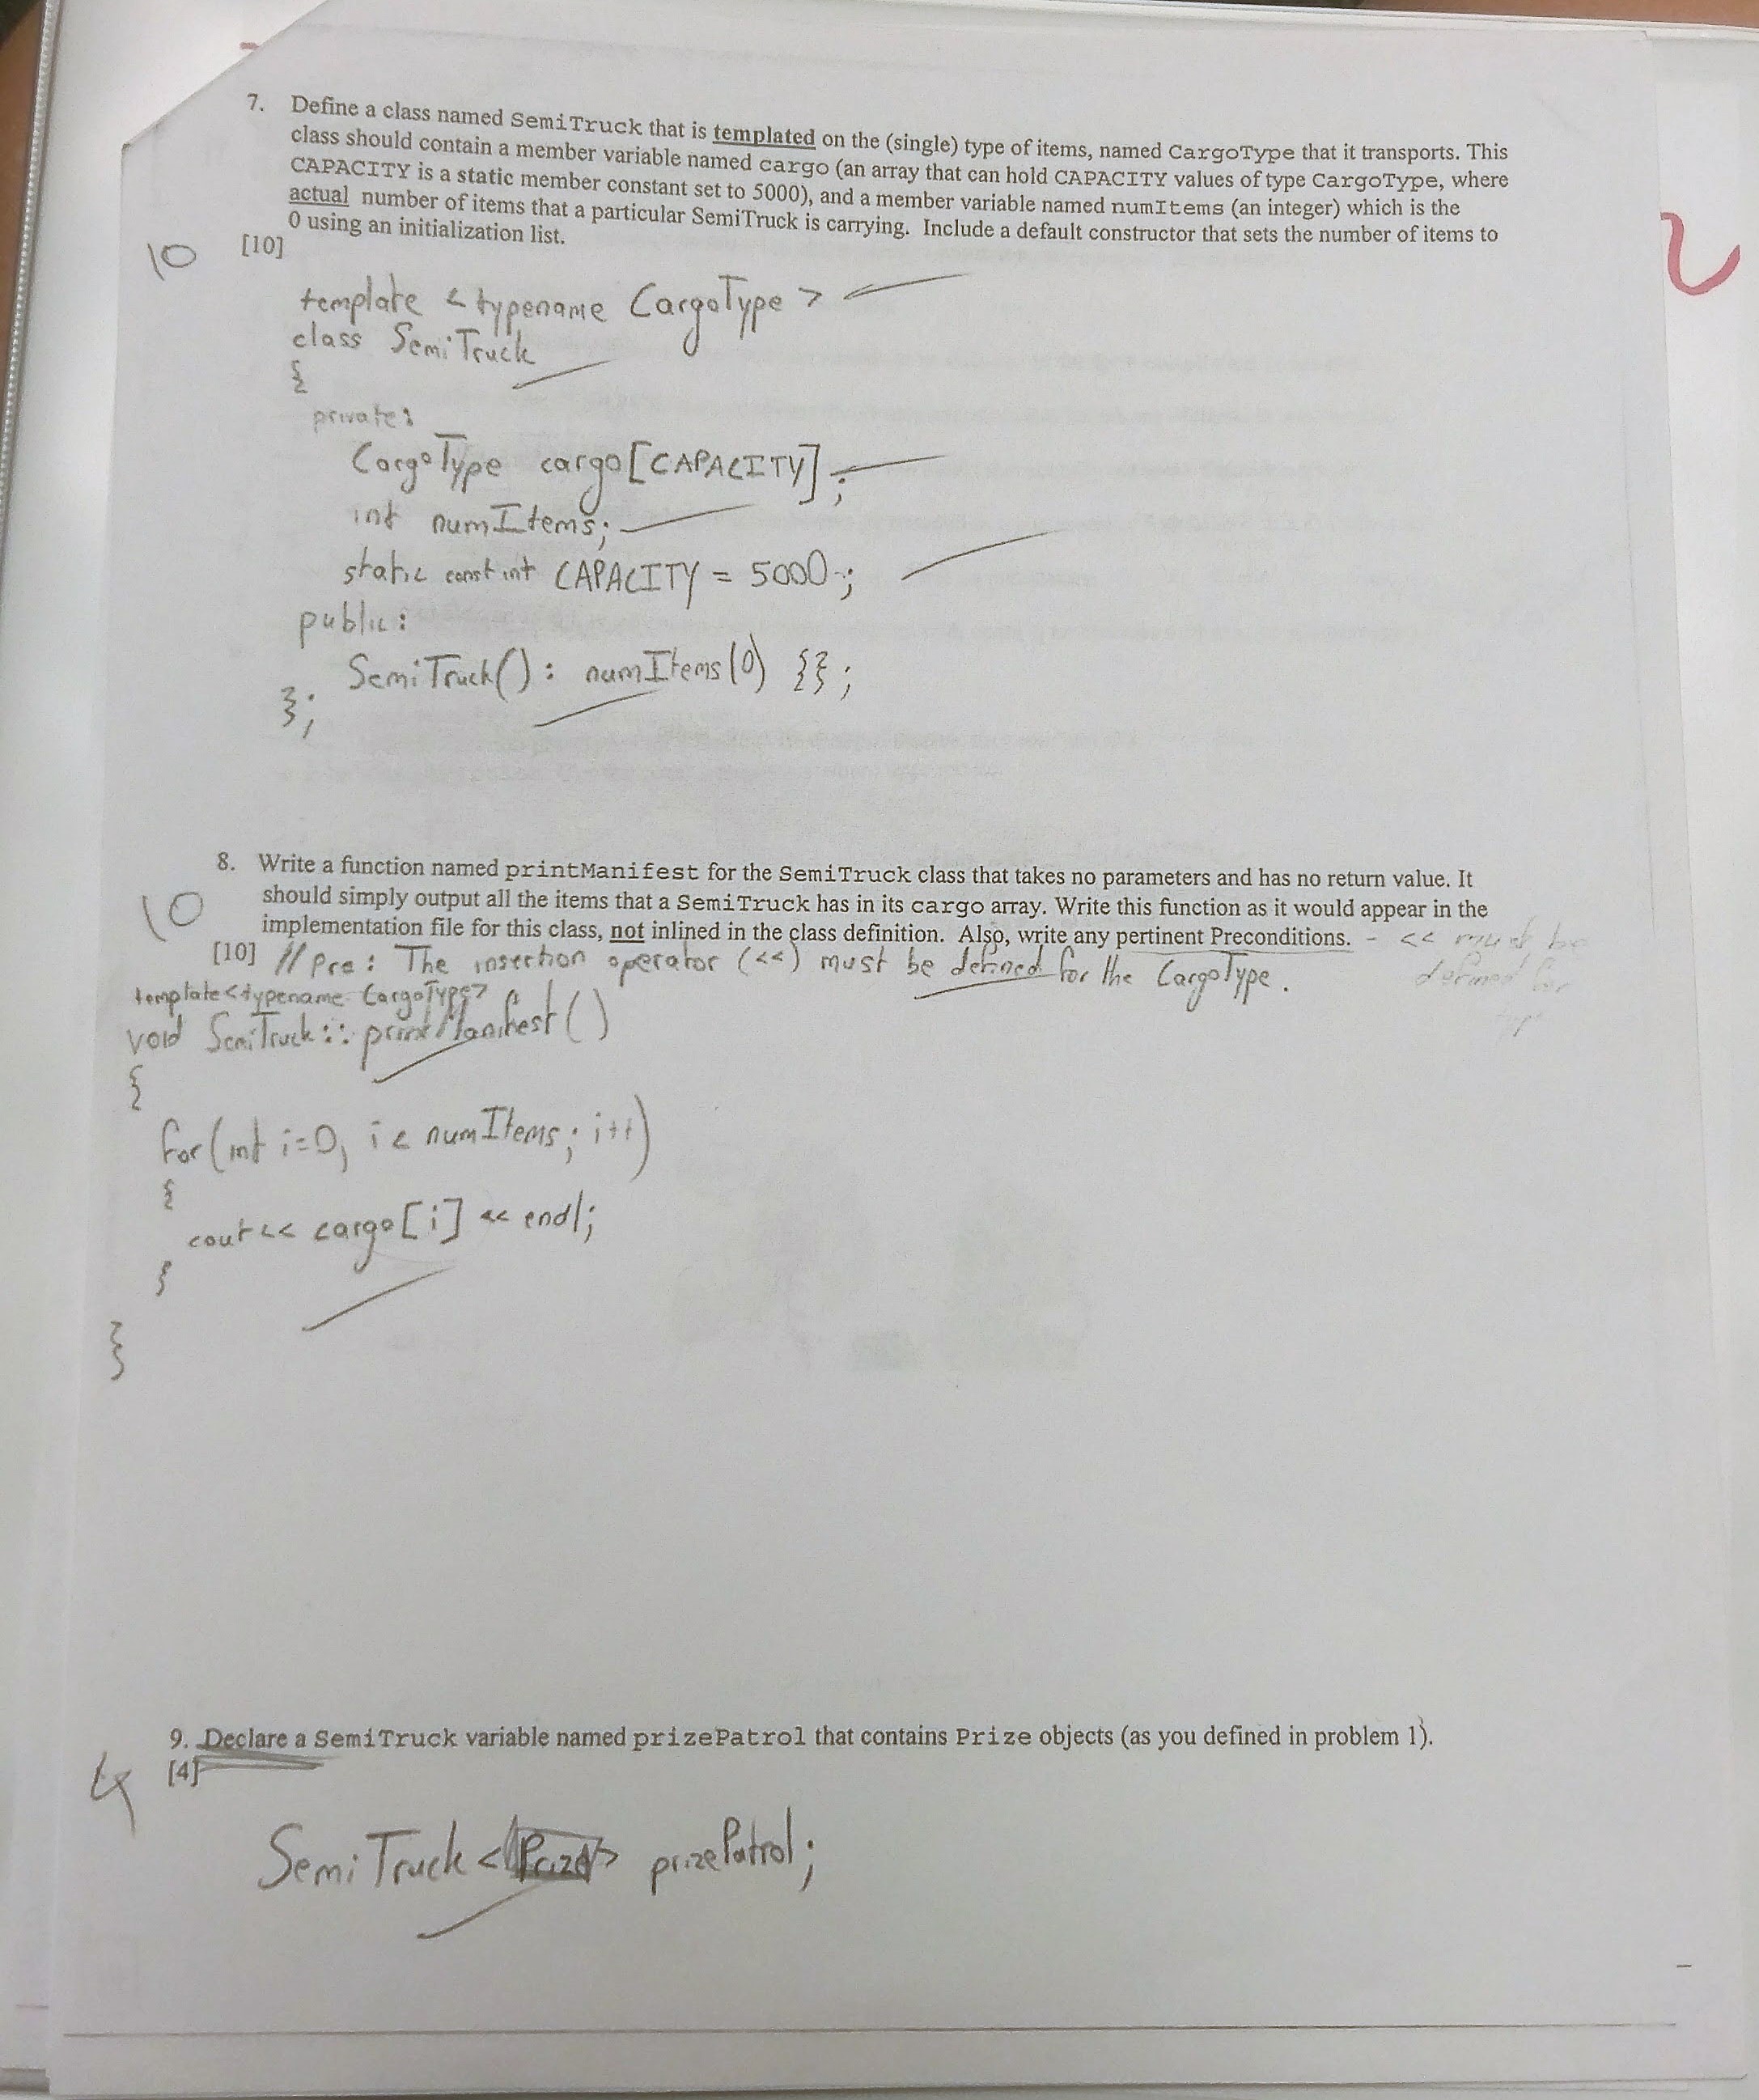 7. Define a class named SemiTruck that is templated on the (single) type of items, named CargoType that it transports. This
class should contain a member variable named cargo (an array that can hold CAPACITY values of type CargoType, where
CAPACITY is a static member constant set to 5000), and a member variable named numItems (an integer) which is the
actual number of items that a particular SemiTruck is carrying. Include a default constructor that sets the number of items to
0 using an initialization list.
10 [10]
template < typename CargoType >
class SemiTruck
{
private:
CargoType cargo[CAPACITY];
int numItems;
static const int CAPACITY = 5000;
public:
SemiTruck(): numItems(0) {};
};
8. Write a function named printManifest for the SemiTruck class that takes no parameters and has no return value. It
10 should simply output all the items that a SemiTruck has in its cargo array. Write this function as it would appear in the
implementation file for this class, not inlined in the class definition. Also, write any pertinent Preconditions. - << must be
defined for
[10] // Pre: The insertion operator (<<) must be defined for the CargoType.
template<typename CargoType>
void SemiTruck:: printManifest()
{
for(int i=0; i < numItems; i++)
{
cout << cargo[i] << endl;
}
}
9. Declare a SemiTruck variable named prizePatrol that contains Prize objects (as you defined in problem 1).
4 [4]
SemiTruck <Prize> prizePatrol;